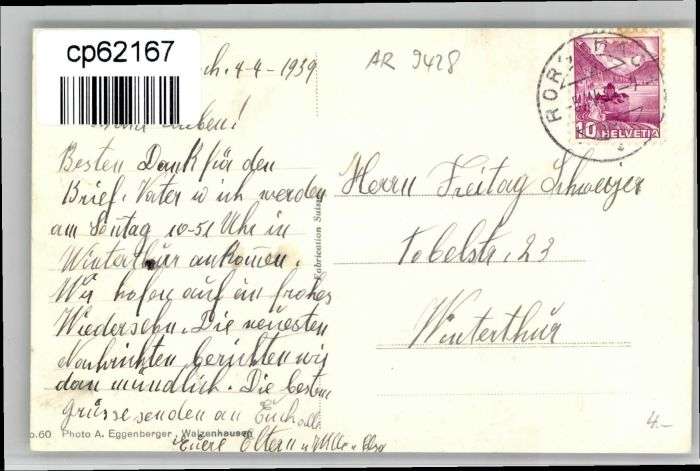 cp62167
ch. 4-4-1939
AR 9428
RORSCHACH
10 HELVETIA
Lieben!
Besten Dank für den
Brief. Vater u ich werden
am Sontag 10-51 Uhr in
Winterthur ankomen.
Wir hofen auf ein frohes
Wiedersehn. Die neuesten
Nachrichten berichten wir
dan mündlich. Die besten
Grüsse senden an Euch alle
Euere Eltern u
Fabrication Suisse
Herrn Freitag Schweizer
Tobelstr. 23
Winterthur
4.-
o.60 Photo A. Eggenberger, Walzenhausen